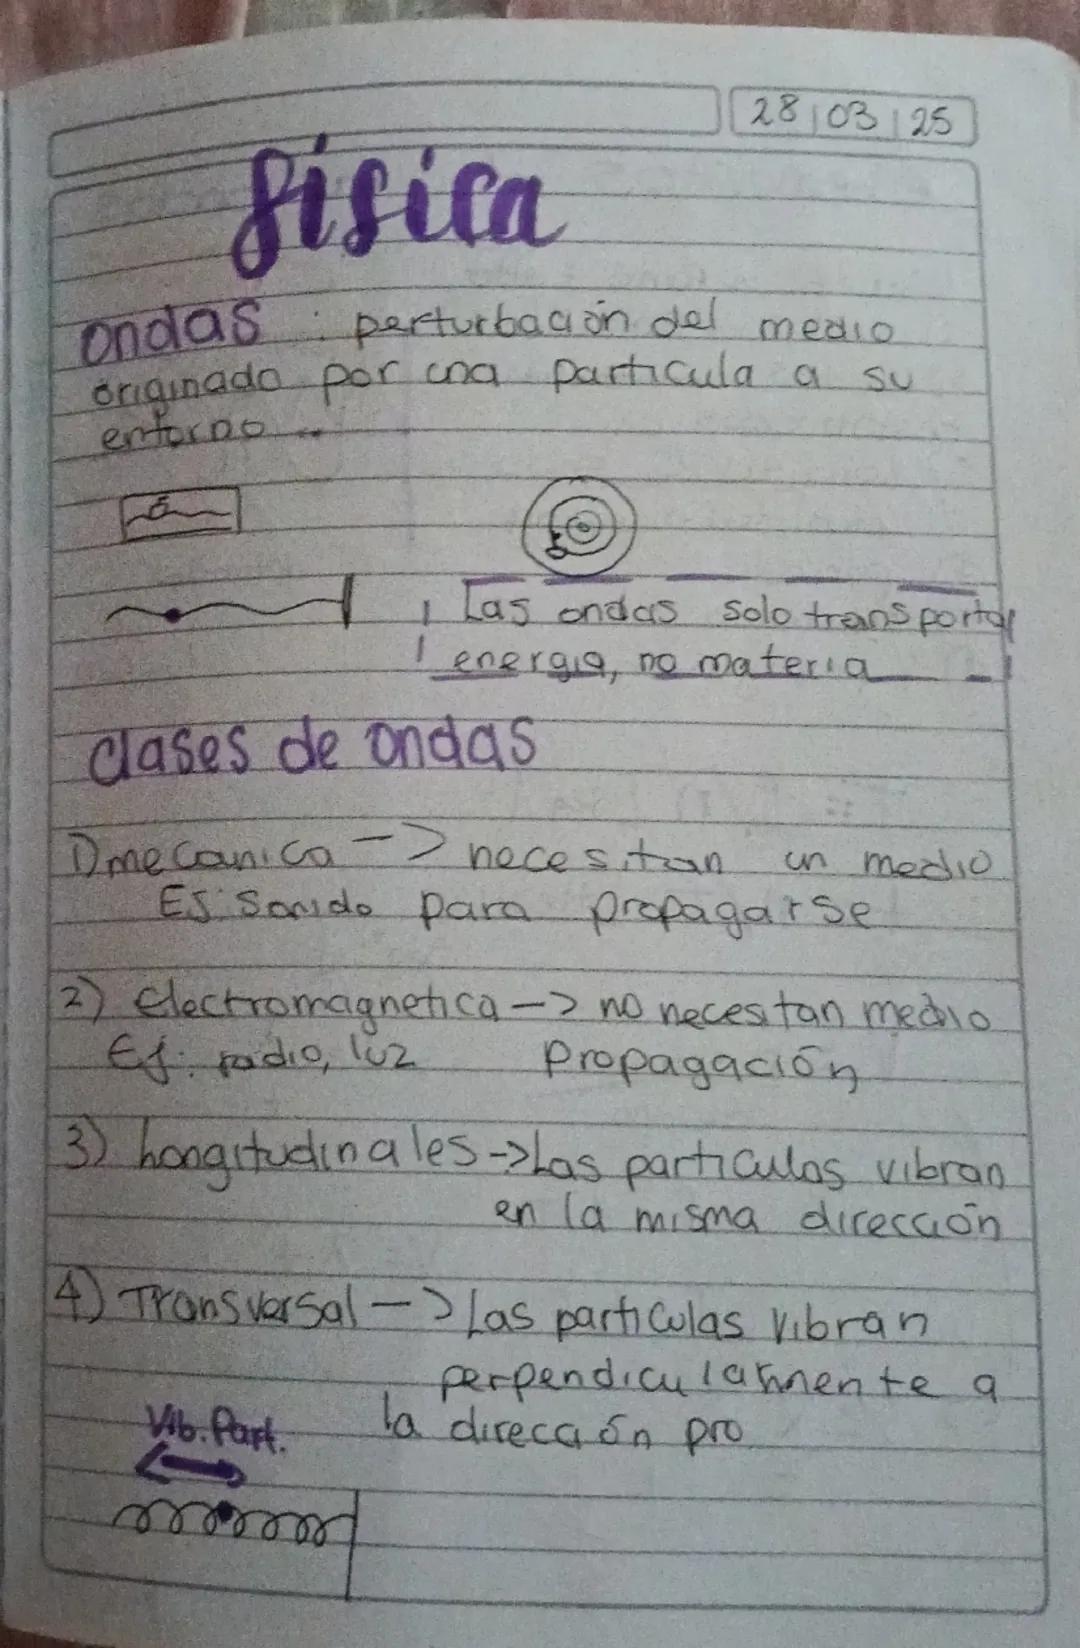 28/03/25
física
ondas : perturbación del medio
originado por una particula a su
entorno
Las ondas solo transportar
energia, no materia
clases de ondas
1) mecanica -> necesitan un medio
Ej: Sonido para propagarse
2) Electromagnetica -> no necesitan medio
Ej: radio, luz propagación
3) Longitudinales -> Las particulas vibran
en la misma dirección
4) Transversal -> Las particulas vibran
perpendicularmente a
la dirección pro
Vib. Part.